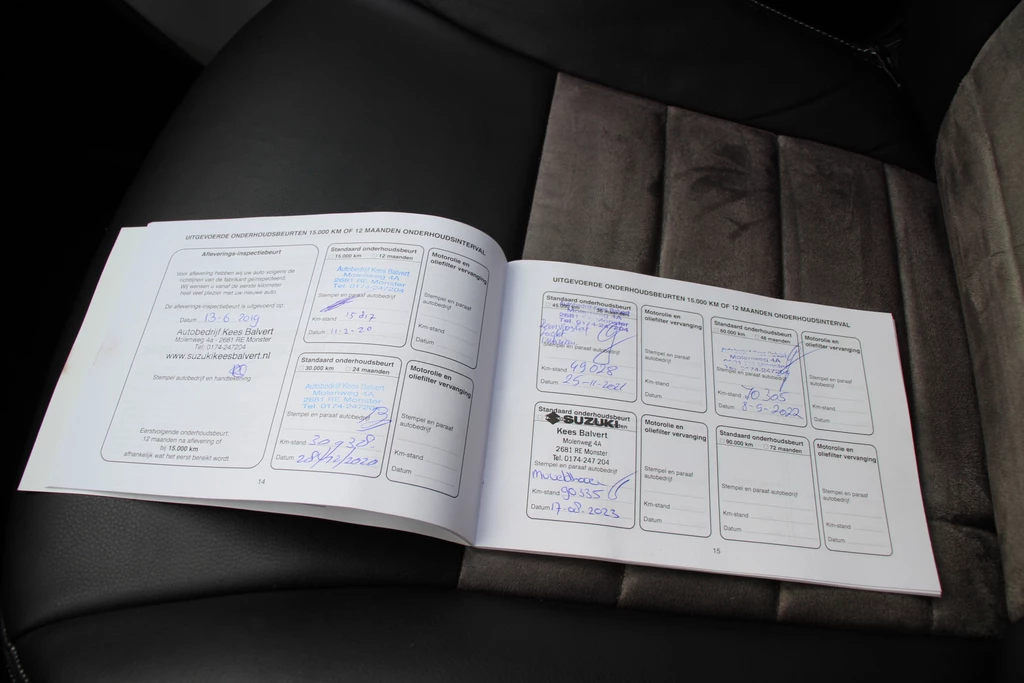 UITGEVOERDE ONDERHOUDSBEURTEN 15.000 KM OF 12 MAANDEN ONDERHOUDSINTERVAL
Afleverings-inspectiebeurt
Voor aflevering hebben wij uw auto volgens de
richtlijnen van de fabrikant geïnspecteerd.
Wij wensen u vanaf de eerste kilometer
heel veel plezier met uw nieuwe auto.
De afleverings-inspectiebeurt is uitgevoerd op:
Datum 13-6-2019
Autobedrijf Kees Balvert
Molenweg 4a - 2681 RE Monster
Tel. 0174-247204
www.suzukikeesbalvert.nl
Stempel autobedrijf en handtekening
Eerstvolgende onderhoudsbeurt:
12 maanden na aflevering of
bij 15.000 km
afhankelijk wat het eerst bereikt wordt.
Standaard onderhoudsbeurt
15.000 km 12 maanden
Autobedrijf Kees Balvert
Molenweg 4A
2681 RE Monster
Tel. 0174-247204
Stempel en paraaf autobedrijf
Km-stand
Datum 11-2-20
Motorolie en
oliefilter vervanging
Stempel en paraaf
autobedrijf
Km-stand
Datum
Standaard onderhoudsbeurt
30.000 km 24 maanden
Autobedrijf Kees Balvert
Molenweg 4A
2681 RE Monster
Tel. 0174-247204
Stempel en paraaf autobedrijf
Km-stand
Datum 28/12/2020
Motorolie en
oliefilter vervanging
Stempel en paraaf
autobedrijf
Km-stand
Datum
14
UITGEVOERDE ONDERHOUDSBEURTEN 15.000 KM OF 12 MAANDEN ONDERHOUDSINTERVAL
Standaard onderhoudsbeurt
45.000 km 36 maanden
Stempel en paraaf autobedrijf
Km-stand 49028
Datum 25-11-2021
Motorolie en
oliefilter vervanging
Stempel en paraaf
autobedrijf
Km-stand
Datum
Standaard onderhoudsbeurt
60.000 km 48 maanden
Molenweg 4A
Stempel en paraaf
autobedrijf
Km-stand 70305
Datum 8-9-2022
Motorolie en
oliefilter vervanging
Stempel en paraaf
autobedrijf
Km-stand
Datum
Standaard onderhoudsbeurt
SUZUKI
Kees Balvert
Molenweg 4A
2681 RE Monster
Tel. 0174-247 204
Stempel en paraaf autobedrijf
Km-stand 90335
Datum 17-08-2023
Motorolie en
oliefilter vervanging
Stempel en paraaf
autobedrijf
Km-stand
Datum
Standaard onderhoudsbeurt
90.000 km 72 maanden
Stempel en paraaf autobedrijf
Km-stand
Datum
Motorolie en
oliefilter vervanging
Stempel en paraaf
autobedrijf
Km-stand
Datum
15